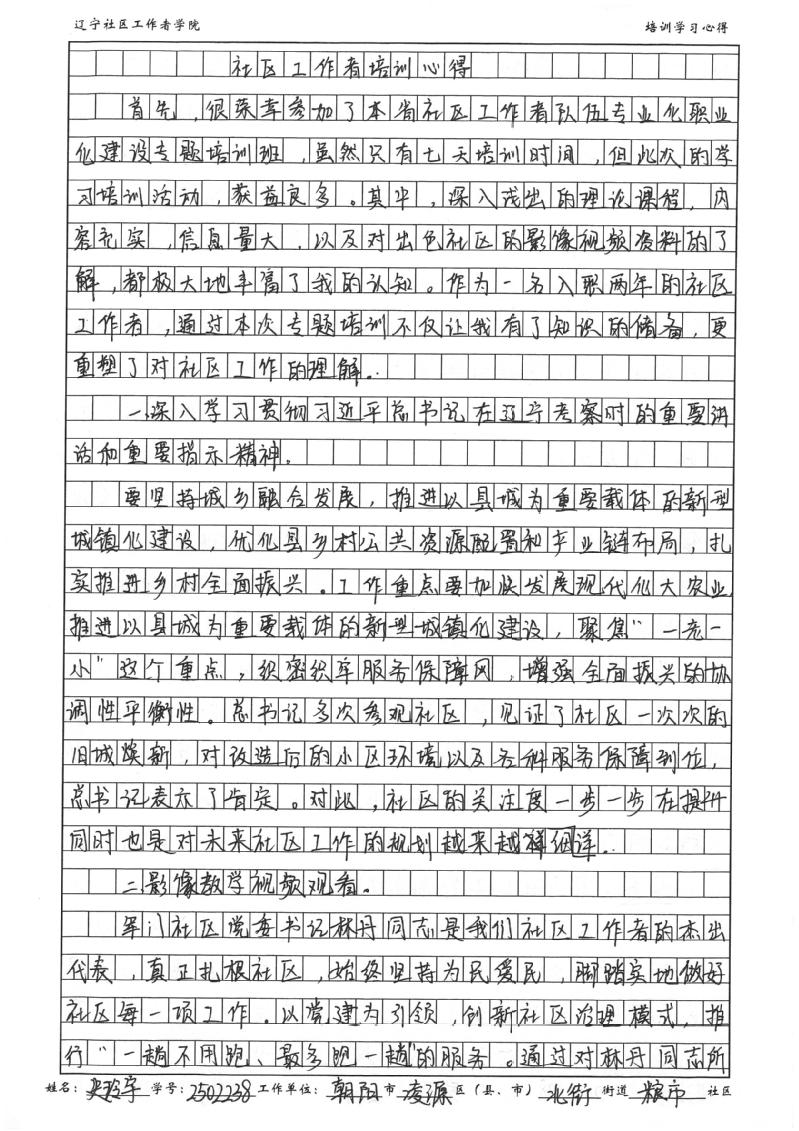 辽宁社区工作者学院
培训学习心得
社区工作者培训心得
首先,很荣幸参加了本省社区工作者队伍专业化职业
化建设专题培训班,虽然只有七天培训时间,但此次的学
习培训活动,获益良多。其中,深入浅出的理论课程,内
容充实,信息量大,以及对出色社区的影像视频资料的了
解,都极大地丰富了我的认知。作为一名入职两年的社区
工作者,通过本次专题培训不仅让我有了知识的储备,更
重塑了对社区工作的理解。
一、深入学习贯彻习近平总书记在辽宁考察时的重要讲
话和重要指示精神。
要坚持城乡融合发展,推进以县城为重要载体的新型
城镇化建设,优化县乡村公共资源配置和产业链布局,扎
实推进乡村全面振兴。工作重点要加快发展现代化大农业
推进以县城为重要载体的新型城镇化建设,聚焦“一老一
小”这个重点,织密织牢服务保障网,增强全面振兴的协
调性平衡性。总书记多次参观社区,见证了社区一次次的
旧城焕新,对改造后的小区环境以及各种服务保障到位,
总书记表示了肯定。对此,社区的关注度一步一步在提升
同时也是对未来社区工作的规划越来越详细详。
二、影像教学视频观看。
军门社区党委书记林丹同志是我们社区工作者的杰出
代表,真正扎根社区,始终坚持为民爱民,脚踏实地做好
社区每一项工作。以党建为引领,创新社区治理模式,推
行“一趟不用跑、最多跑一趟”的服务。通过对林丹同志所
姓名: 学号:2502238 工作单位: 朝阳 市 凌源 区(县、市) 北街 街道 粮市 社区